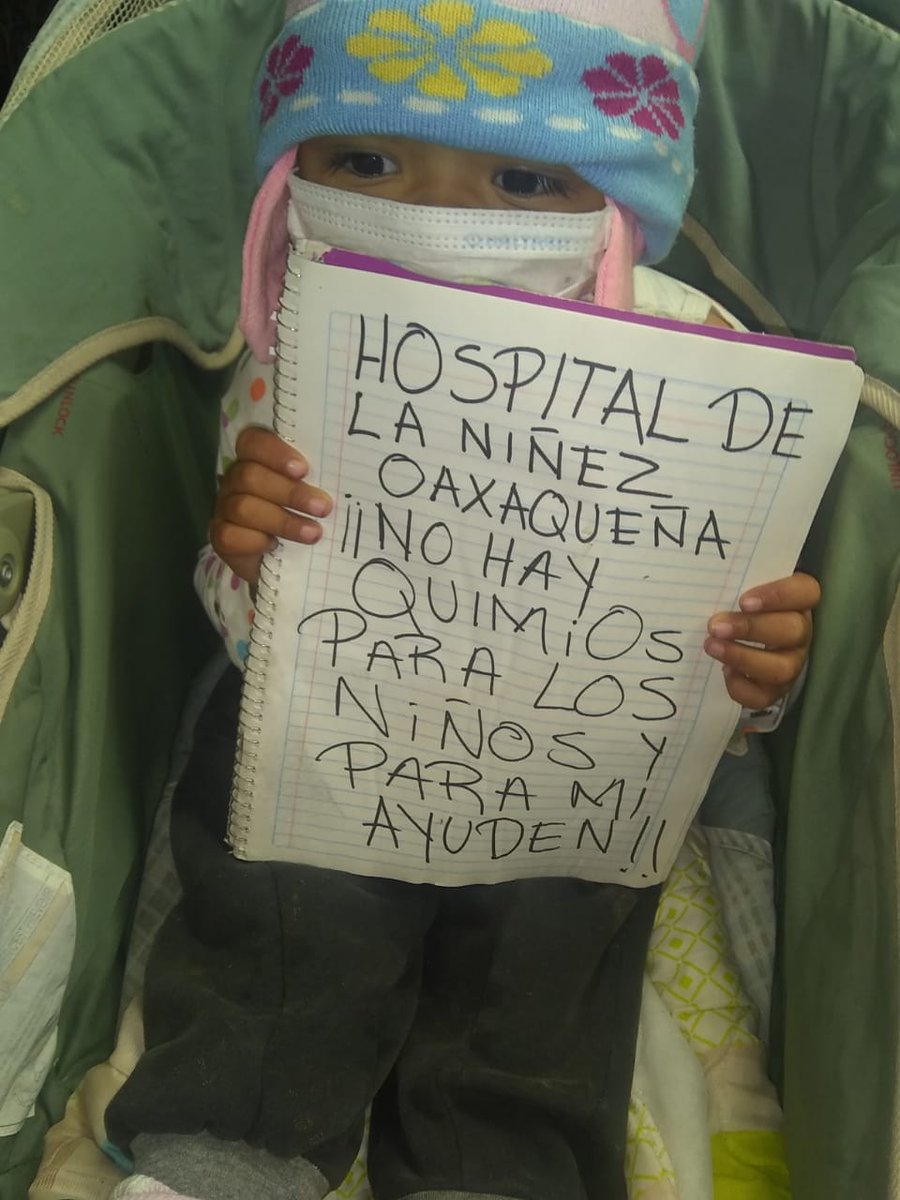 HOSPITAL DE
LA NIÑEZ
OAXAQUEÑA
¡¡NO HAY
QUIMiOS
PARA LOS
NiÑOS Y
PARA Mi
AYUDEN!!